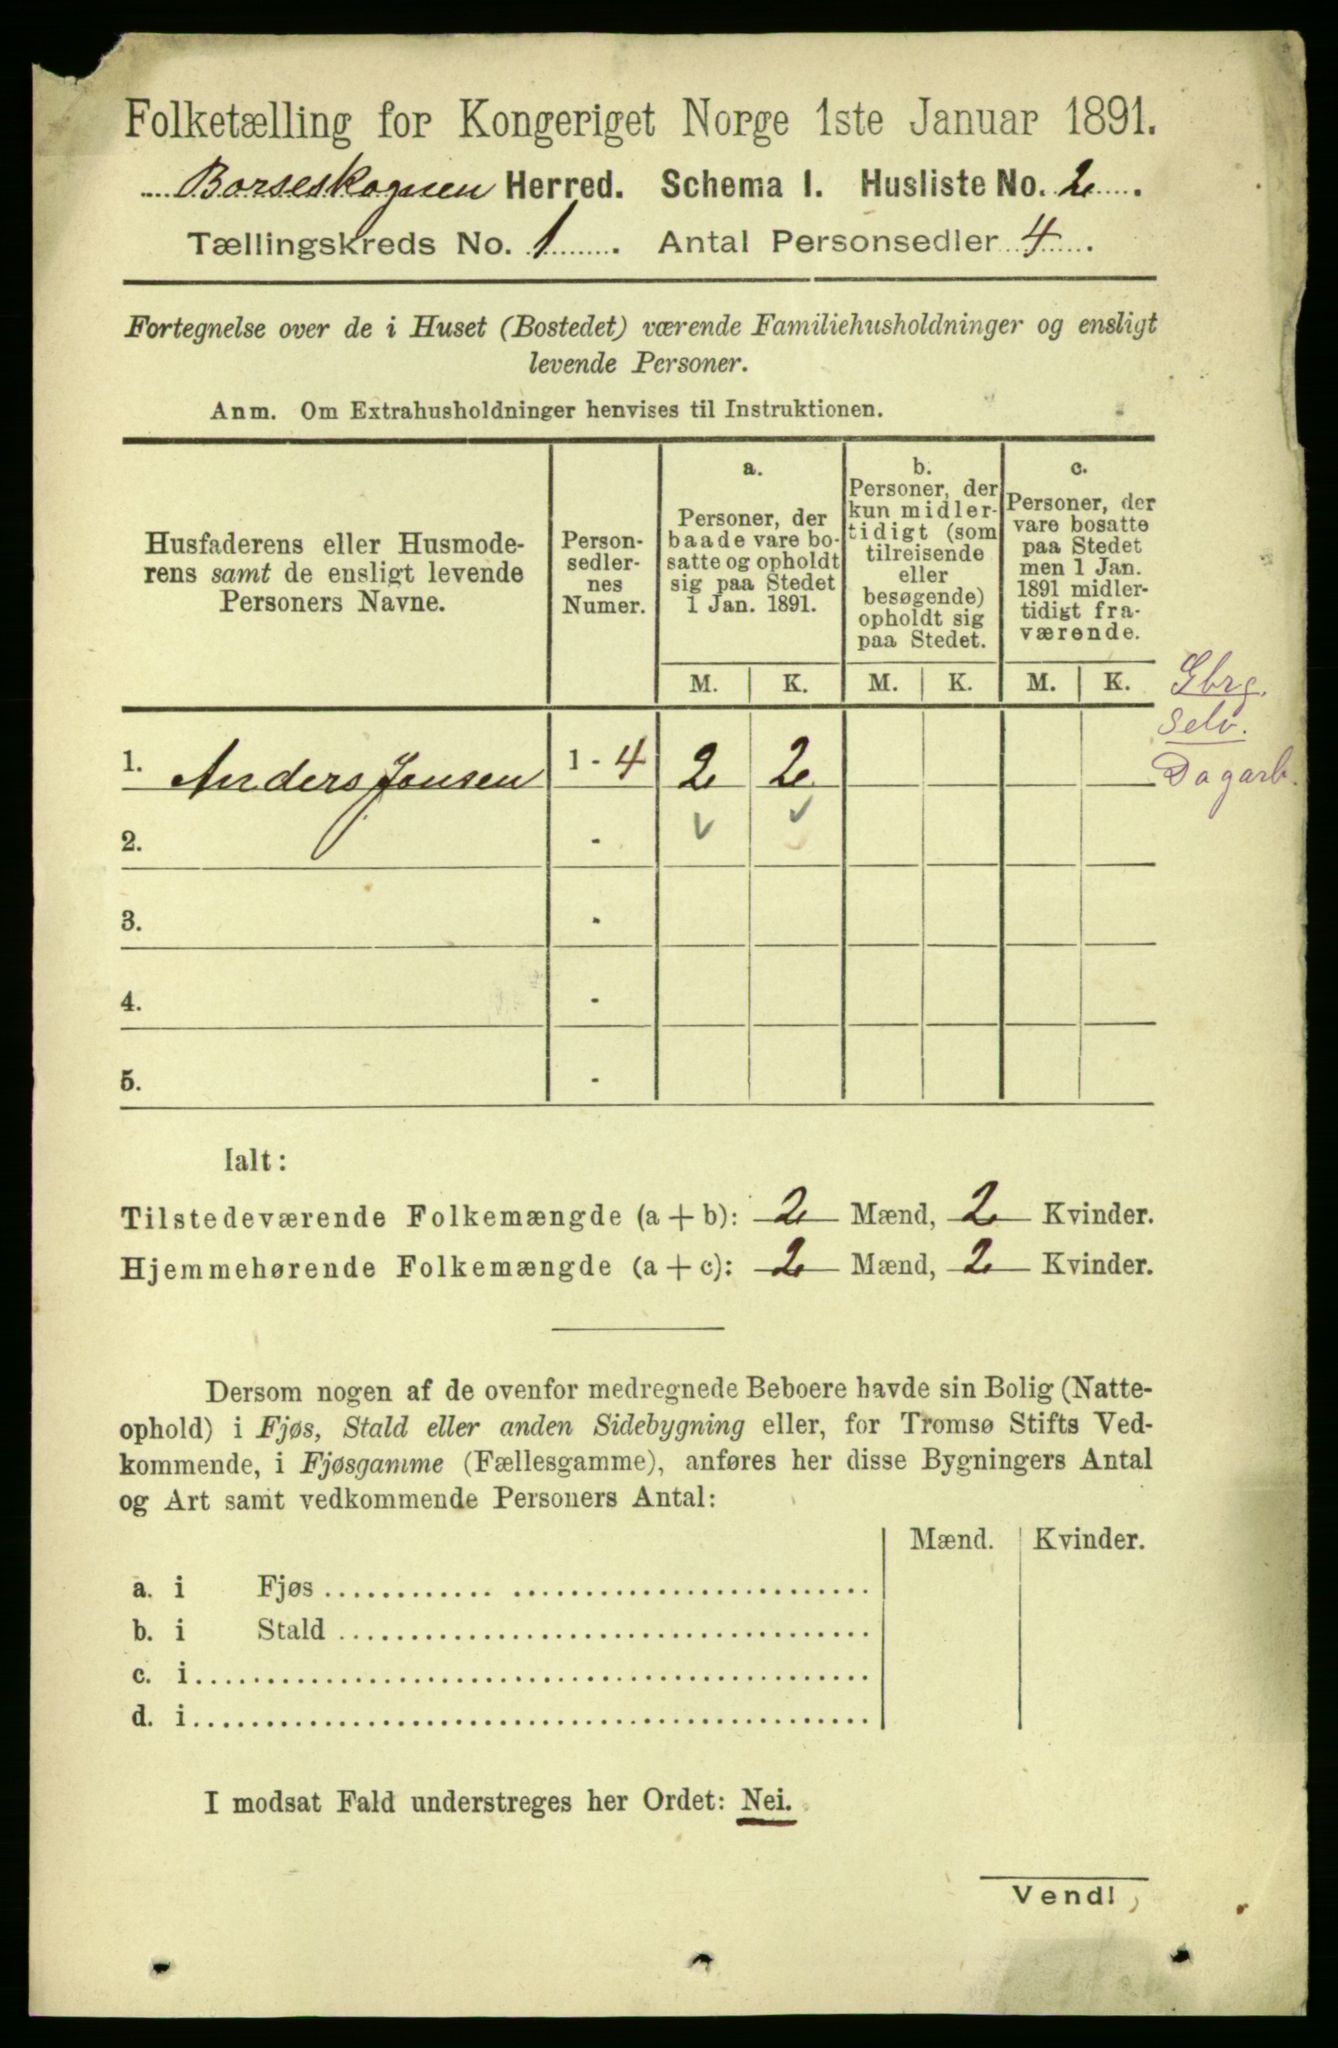 Folketælling for Kongeriget Norge 1ste Januar 1891.
Børseskognen Herred. Schema I. Husliste No. 2.
Tællingskreds No. 1. Antal Personsedler 4.
Fortegnelse over de i Huset (Bostedet) værende Familiehusholdninger og ensligt
levende Personer.
Anm. Om Extrahusholdninger henvises til Instruktionen.
Husfaderens eller Husmode-
rens samt de ensligt levende
Personers Navne.
Person-
sedler-
nes
Numer.
a.
Personer, der
baade vare bo-
satte og opholdt
sig paa Stedet
1 Jan. 1891.
b.
Personer, der
kun midler-
tidigt (som
tilreisende
eller
besøgende)
opholdt sig
paa Stedet.
c.
Personer, der
vare bosatte
paa Stedet
men 1 Jan.
1891 midler-
tidigt fra-
værende.
M. K. M. K. M. K.
Gbrg.
Selv.
Dagarb.
1. Anders Jonsen 1 - 4 2 2
2. -
3. -
4. -
5. -
Ialt:
Tilstedeværende Folkemængde (a + b): 2 Mænd, 2 Kvinder.
Hjemmehørende Folkemængde (a + c): 2 Mænd, 2 Kvinder.
Dersom nogen af de ovenfor medregnede Beboere havde sin Bolig (Natte-
ophold) i Fjøs, Stald eller anden Sidebygning eller, for Tromsø Stifts Ved-
kommende, i Fjøsgamme (Fællesgamme), anføres her disse Bygningers Antal
og Art samt vedkommende Personers Antal:
Mænd. Kvinder.
a. i Fjøs
b. i Stald
c. i
d. i
I modsat Fald understreges her Ordet: Nei.
Vend!